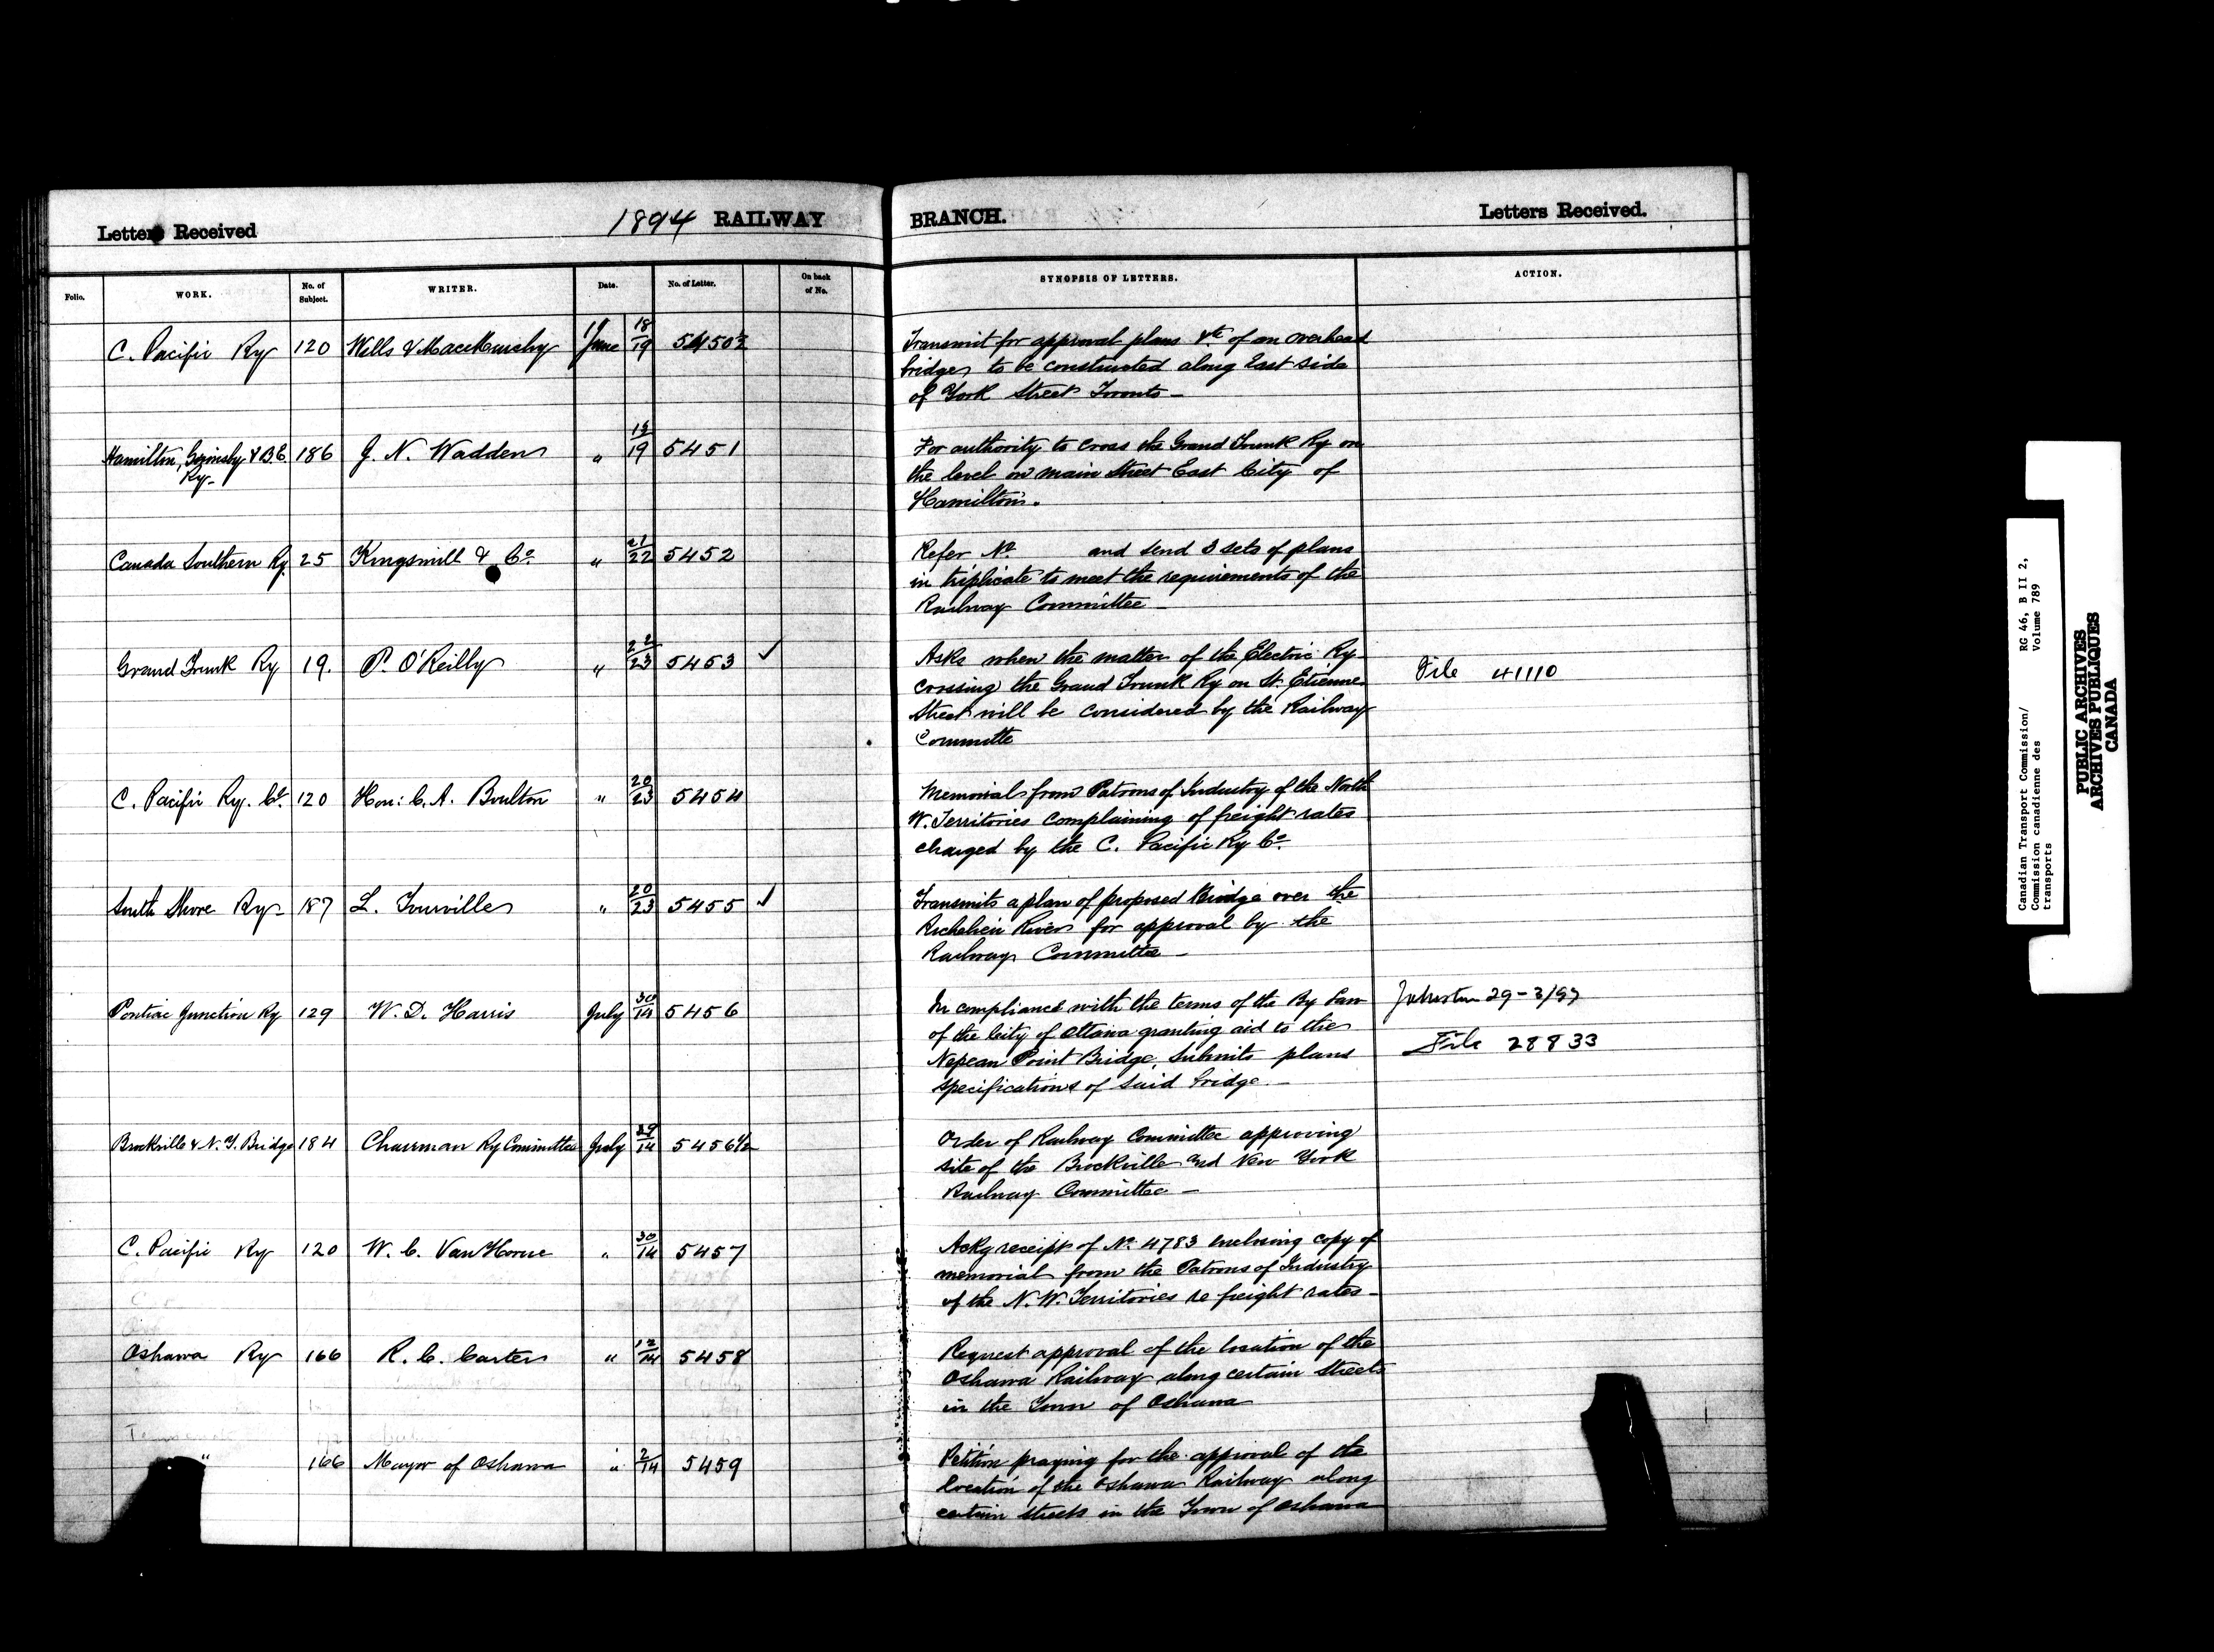 Letters Received
1894 RAILWAY BRANCH.
Letters Received.
Folio. WORK. No. of Subject. WRITER. Date. No. of Letter. On back of No. SYNOPSIS OF LETTERS. ACTION.
C. Pacific Ry 120 Wells & MacMurchy June 18/19 5450½
Transmit for approval plans &tc of an overhead
bridge to be constructed along East side
of York Street Toronto -
Hamilton, Grimsby & B.C. 186 J. N. Wadden " 19 5451
Ry-
For authority to cross the Grand Trunk Ry on
the level on main Street East City of
Hamilton.
Canada Southern Ry. 25 Kingsmill & Co. " 21/22 5452
Refer No. and send 3 sets of plans
in triplicate to meet the requirements of the
Railway Committee -
Grand Trunk Ry 19. P. O'Reilly " 22/23 5453 ✓
Asks when the matter of the Electric Ry
crossing the Grand Trunk Ry on St. Etienne
Street will be considered by the Railway
Committe
File 41110
C. Pacific Ry. Co. 120 Hon: C. A. Boulton " 20/23 5454
Memorial from Patrons of Industry of the North
W. Territories complaining of freight rates
charged by the C. Pacific Ry Co.
South Shore Ry- 187 L. Tourville " 20/23 5455 ✓
Transmits a plan of proposed Bridge over the
Richelieu River for approval by the
Railway Committee -
Pontiac Junction Ry 129 W. D. Harris July 30/14 5456
In compliance with the terms of the By Law
of the City of Ottawa granting aid to the
Nepean Point Bridge, Submits plans
specifications of said bridge. -
Johnston 29-3/97
File 28833
Brockville & N.Y. Bridge 184 Chairman Ry Committee July 29/14 5456½
Order of Railway Committee approving
site of the Brockville and New York
Railway Committee -
C. Pacific Ry 120 W. C. Van Horne " 30/14 5457
Ackg receipt of No. 4783 enclosing copy of
memorial from the Patrons of Industry
of the N.W. Territories re freight rates -
Oshawa Ry 166 R. C. Carter " 12/14 5458
Request approval of the location of the
Oshawa Railway along certain streets
in the Town of Oshawa
" 166 Mayor of Oshawa " 2/14 5459
Petition praying for the approval of the
location of the Oshawa Railway along
certain streets in the Town of Oshawa
Canadian Transport Commission/
Commission canadienne des
transports
RG 46, B II 2,
Volume 789
PUBLIC ARCHIVES
ARCHIVES PUBLIQUES
CANADA